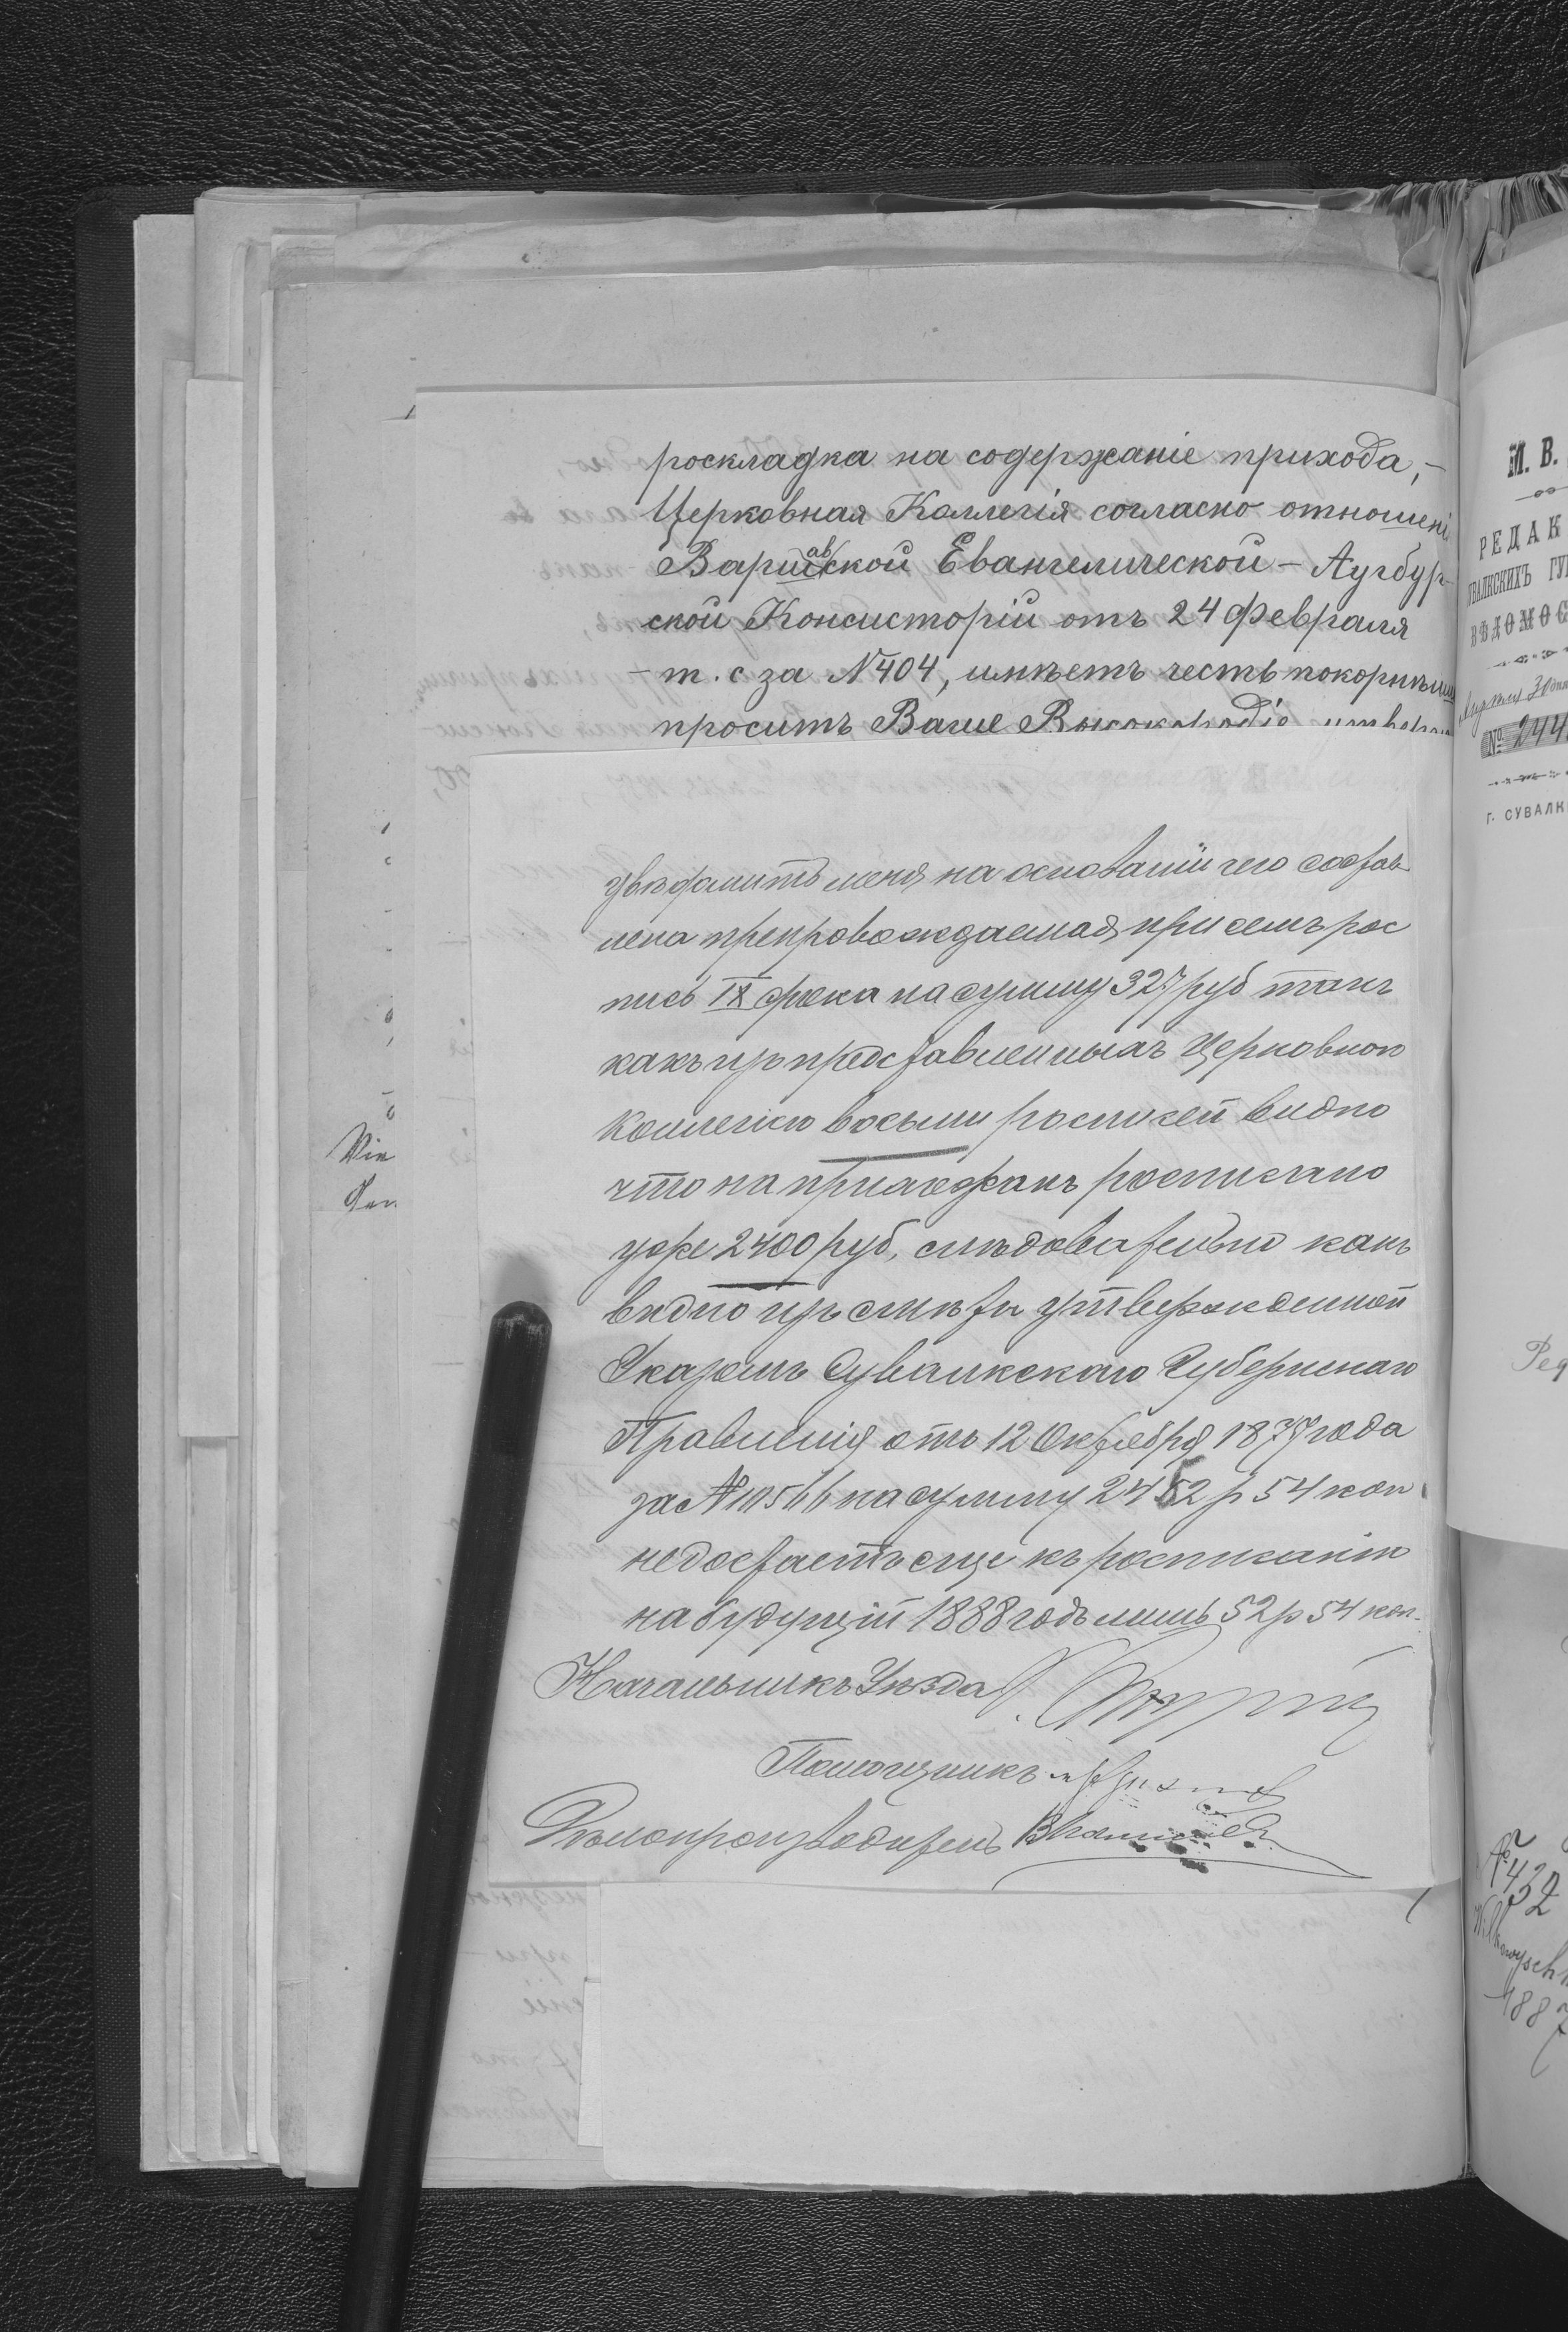 роскладка на содержаніе прихода, –
Церковная Коллегія согласно отношені
Варшавской Евангелической – Аугбур-
ской Консисторіи отъ 24 февраля
– т. с за № 404, имѣетъ честь покорнѣйш
проситъ Ваше Высокородіе утверд
увѣдомить меня, на основаніи чего состав
лена препровождаемая при семъ рос
пись IX срока на сумму 327 руб такъ
какъ изъ представленныхъ Церковною
Коллегіею восьми росписей видно
что на прихожанъ росписано
уже 2400 руб, слѣдовательно какъ
видно изъ смѣты утвержденной
Указомъ Сувалкскаго Губернскаго
Правленія отъ 12 Октября 1879 года
за № 10566 на сумму 2452 р 54 коп
недостаетъ еще къ росписанію
на будущій 1888 годъ лишь 52 р 54 коп.
Начальникъ Уѣзда
Помощникъ
Дѣлопроизводитель
Vin
М. В.
РЕДАК
УВАЛКСКИХЪ ГУ
ВѢДОМОС
31 дня
№ 244
Г. СУВАЛК
Ред
№ 432
Wilkowysch
1887